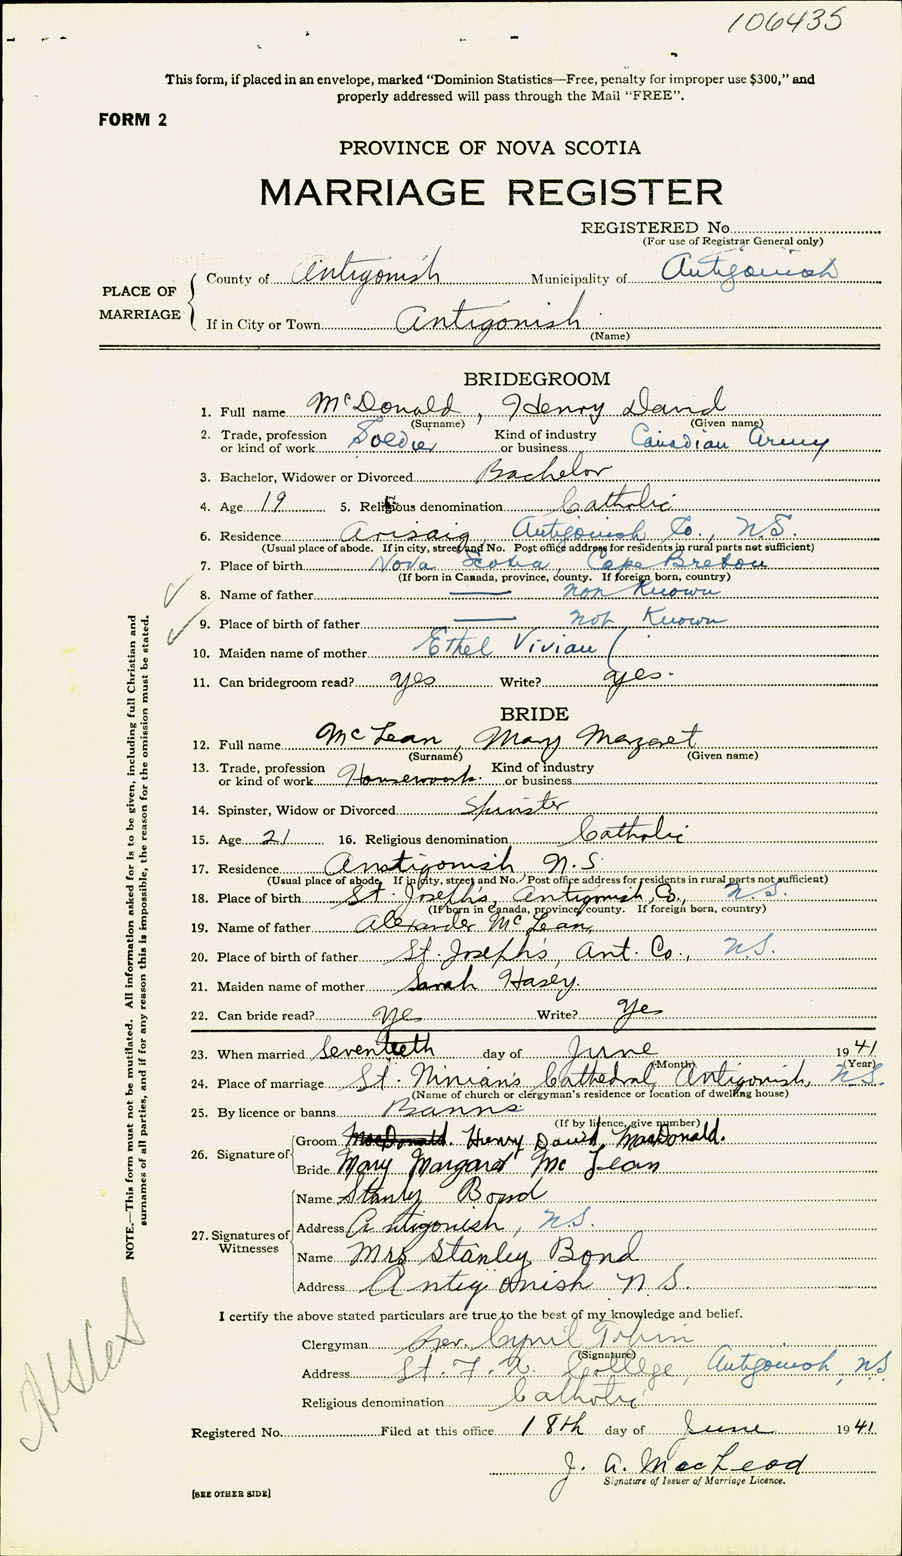 106435
This form, if placed in an envelope, marked "Dominion Statistics—Free, penalty for improper use $300," and
properly addressed will pass through the Mail "FREE".
FORM 2
PROVINCE OF NOVA SCOTIA
MARRIAGE REGISTER
REGISTERED No
(For use of Registrar General only)
PLACE OF MARRIAGE
County of Antigonish Municipality of Antigonish
If in City or Town Antigonish
(Name)
BRIDEGROOM
1. Full name McDonald, Henry David
(Surname) (Given name)
2. Trade, profession or kind of work Soldier Kind of industry or business Canadian Army
3. Bachelor, Widower or Divorced Bachelor
4. Age 19 5. Religious denomination Catholic
6. Residence Arisaig Antigonish Co., N.S.
(Usual place of abode. If in city, street and No. Post office address for residents in rural parts not sufficient)
7. Place of birth Nova Scotia, Cape Breton
(If born in Canada, province, county. If foreign born, country)
8. Name of father — non Known
9. Place of birth of father — not Known
10. Maiden name of mother Ethel Vivian (
11. Can bridegroom read? yes Write? yes.
BRIDE
12. Full name McLean, Mary Margaret
(Surname) (Given name)
13. Trade, profession or kind of work Housework. Kind of industry or business
14. Spinster, Widow or Divorced Spinster
15. Age 21 16. Religious denomination Catholic
17. Residence Anatigonish N.S.
(Usual place of abode. If in city, street and No. Post office address for residents in rural parts not sufficient)
18. Place of birth St. Joseph's, Antigonish Co., N.S.
(If born in Canada, province, county. If foreign born, country)
19. Name of father Alexander McLean,
20. Place of birth of father St. Joseph's, Ant. Co., N.S.
21. Maiden name of mother Sarah Hasey.
22. Can bride read? yes Write? Yes
23. When married Seventeeth day of June 1941
(Month) (Year)
24. Place of marriage St. Ninian's Cathedral, Antigonish, N.S.
(Name of church or clergyman's residence or location of dwelling house)
25. By licence or banns Banns
(If by licence, give number)
26. Signature of Groom MacDonald. Henry David, MacDonald.
Bride Mary Margaret McLean
27. Signatures of Witnesses
Name Stanley Bond
Address Antigonish, N.S.
Name Mrs Stanley Bond
Address Antigonish N S.
I certify the above stated particulars are true to the best of my knowledge and belief.
Clergyman Rev. Cyril Tobin
(Signature)
Address St. F. X. College, Antigonish, NS
Religious denomination Catholic
Registered No. Filed at this office 18th day of June 1941
J. A. MacLeod
Signature of Issuer of Marriage Licence.
[SEE OTHER SIDE]
NOTE.—This form must not be mutilated. All information asked for is to be given, including full Christian and
surnames of all parties, and if for any reason this is impossible, the reason for the omission must be stated.